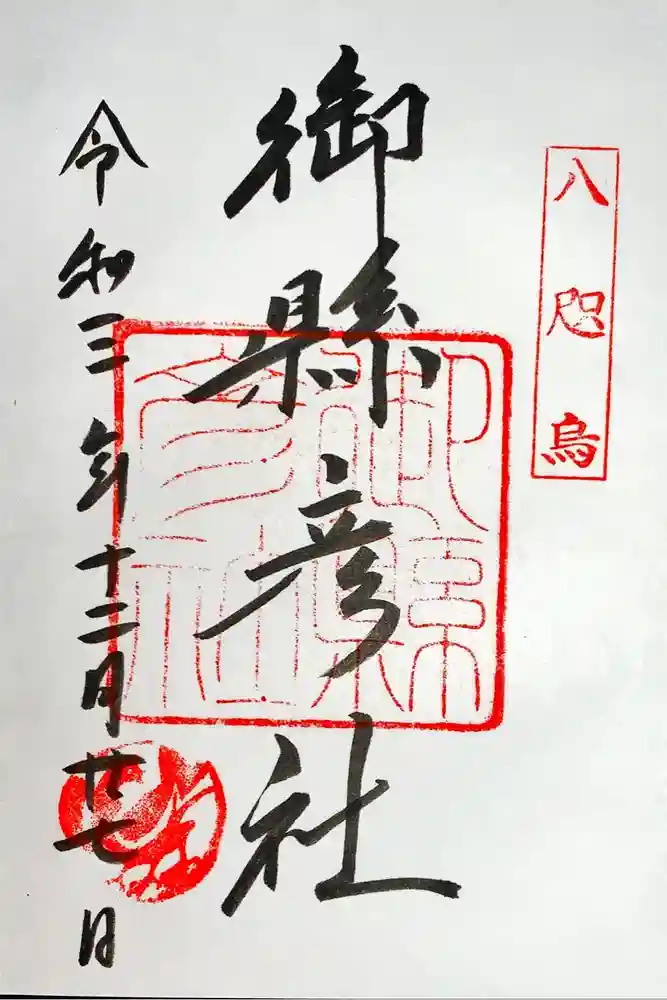 八咫烏
御縣彦社
令和三年十二月廿七日